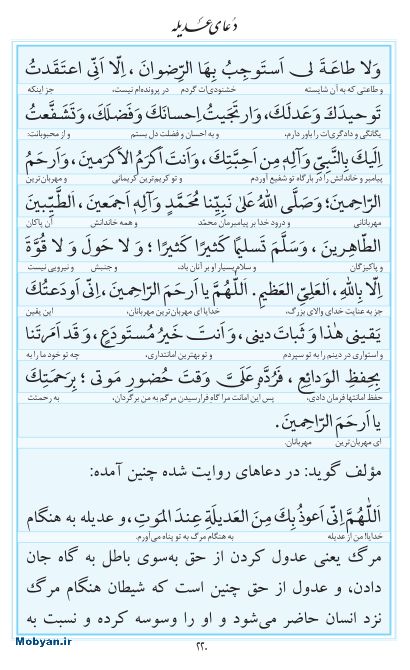 دعای عدیله
وَلا طاعَةَ لي اَستَوجِبُ بِهَا الرِّضوانَ، اِلّا اَنّي اعتَقَدتُ
و طاعتی که به آن شایسته خشنودی‌ات گردم در پرونده‌ام نیست، جز اینکه
تَوحيدَكَ وَعَدلَكَ، وَارتَجَيتُ اِحسانَكَ وَفَضلَكَ، وَتَشَفَّعتُ
یگانگی و دادگری‌ات را باور دارم، و به احسان و فضلت دل بستم و از محبوبانت:
اِلَيكَ بِالنَّبِيِّ وَآلِهِ مِن اَحِبَّتِكَ، وَاَنتَ اَكرَمُ الاَكرَمينَ، وَاَرحَمُ
پیامبر و خاندانش را در بارگاه تو شفیع آوردم و تو کریم‌ترین کریمانی و مهربان‌ترین
الرّاحِمينَ؛ وَصَلَّى اللهُ عَلى نَبِيِّنا مُحَمَّدٍ وَآلِهِ اَجمَعينَ، اَلطَّيِّبينَ
مهربانانی و درود خدا بر پیامبرمان محمّد و همه خاندانش آن پاکان
الطّاهِرينَ، وَسَلَّمَ تَسليمًا كَثيرًا كَثيرًا؛ وَلا حَولَ وَلا قُوَّةَ
و پاکیزگان و سلام بسیار او بر آنان باد، و جنبش و نیرویی نیست
اِلّا بِاللهِ، اَلعَلِيِّ العَظيمِ. اَللّهُمَّ يا اَرحَمَ الرّاحِمينَ، اِنّي اَودَعتُكَ
جز به عنایت خدای والای بزرگ، خدایا ای مهربان‌ترین مهربانان، این یقین
يَقيني هٰذا وَثَباتَ ديني، وَاَنتَ خَيرُ مُستَودَعٍ، وَقَد اَمَرتَنا
و استواری در دینم را به تو سپردم و تو بهترین امانتداری، چه تو خود ما را به
بِحِفظِ الوَدائِعِ، فَرُدَّهُ عَلَيَّ وَقتَ حُضورِ مَوتي؛ بِرَحمَتِكَ
حفظ امانتها فرمان دادی، پس این امانت مرا گاه فرارسیدن مرگم به من برگردان، به رحمتت
يا اَرحَمَ الرّاحِمينَ.
ای مهربان‌ترین مهربانان.
مؤلف گوید: در دعاهای روایت شده چنین آمده:
اَللّهُمَّ اِنّي اَعوذُ بِكَ مِنَ العَديلَةِ عِندَ المَوتِ، و عدیله به هنگام
خدایا! من از عدیله به هنگام مرگ به تو پناه می‌آورم.
مرگ یعنی عدول کردن از حق به‌سوی باطل به گاه جان
دادن، و عدول از حق چنین است که شیطان هنگام مرگ
نزد انسان حاضر می‌شود و او را وسوسه کرده و نسبت به
۲۲۰
Mobyan.ir